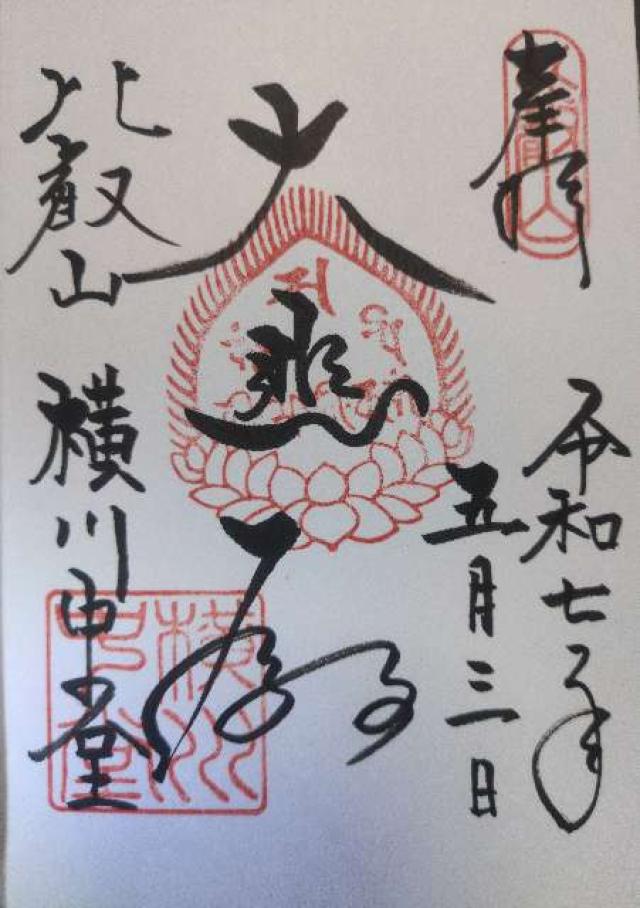 奉拝
令和七年
五月三日
大悲殿
比叡山 横川中堂
横川中堂